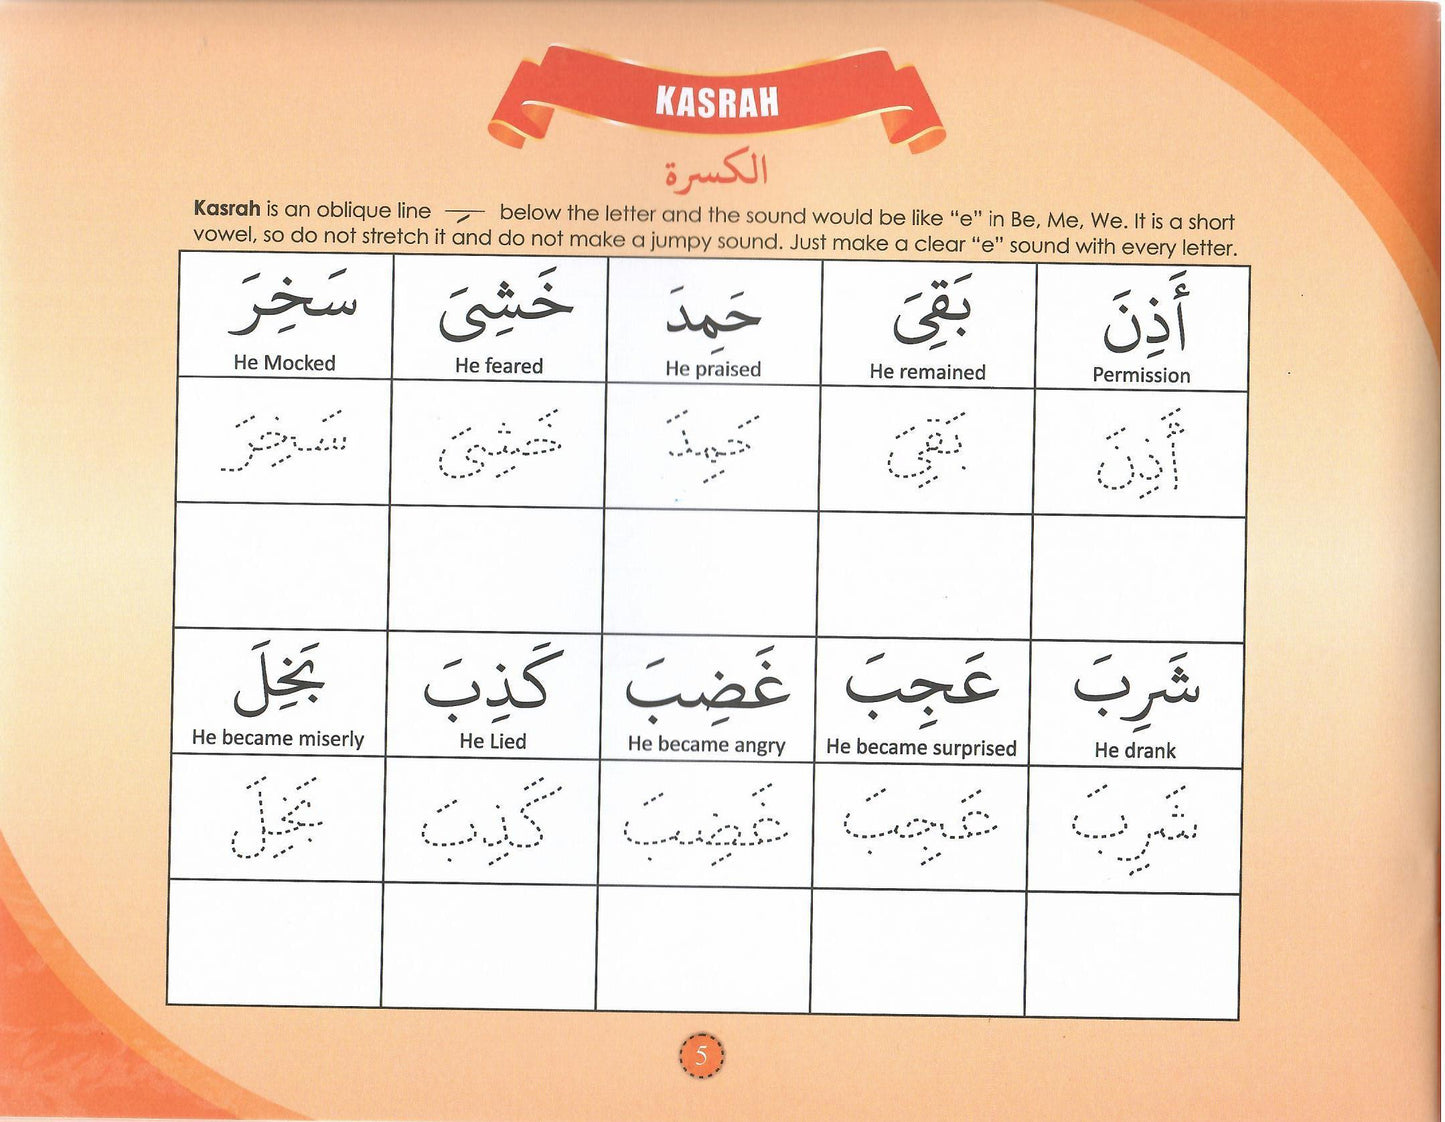 KASRAH
الكسرة
Kasrah is an oblique line ـِ below the letter and the sound would be like “e” in Be, Me, We. It is a short
vowel, so do not stretch it and do not make a jumpy sound. Just make a clear “e” sound with every letter.
أَذِنَ
Permission
بَقِىَ
He remained
حَمِدَ
He praised
خَشِىَ
He feared
سَخِرَ
He Mocked
أَذِنَ
بَقِىَ
حَمِدَ
خَشِىَ
سَخِرَ
شَرِبَ
He drank
عَجِبَ
He became surprised
غَضِبَ
He became angry
كَذِبَ
He Lied
بَخِلَ
He became miserly
شَرِبَ
عَجِبَ
غَضِبَ
كَذِبَ
بَخِلَ
5